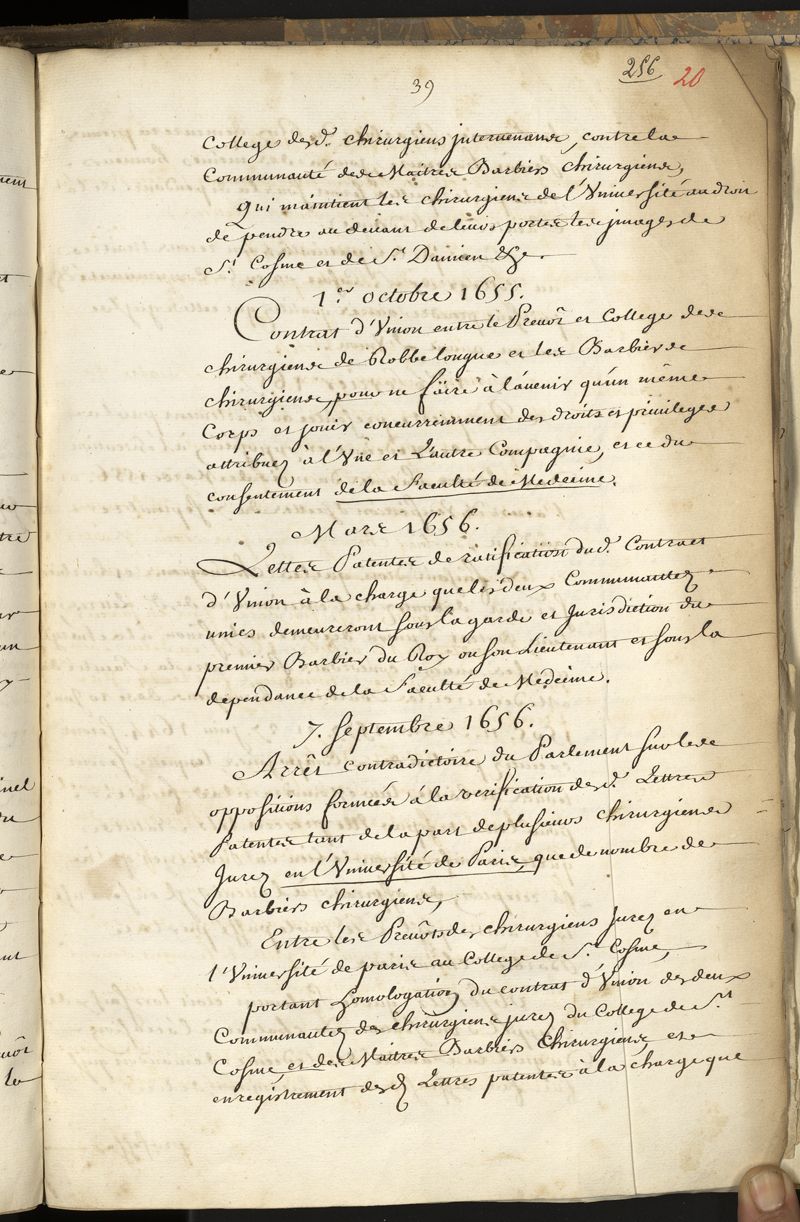 39
256 20
College desd. chirurgiens jntervenans, contre la
Communauté des Maitres Barbiers chirurgiens,
Qui maintient les chirurgiens de l'Vniversité au droit
de pendre au devant de leurs portes les jmages de
St. Cosme et de St. Damien &c.
1.er octobre 1655.
Contrat d'Vnion entre le Prevôt et College des
chirurgiens de Robbe longue et les Barbiers
chirurgiens, pour ne fäire à l'avenir qu'un même
Corps et jouir concurremment des droits et privileges
attribuez à l'Vne et L'autre Compagnie, et ce du
consentement de la Faculté de Medecine.
Mars 1656.
Lettres Patentes de ratification dud. Contract
d'Vnion à la charge que les deux Communautez
unies demeureront sous la garde et Jurisdiction du
premier Barbier du Roy ou son Lieutenant et sous la
dependance de la Faculté de Medecine.
7. Septembre 1656.
Arrêt contradictoire du Parlement sur les
oppositions formées à la verification desd. Lettres
Patentes tant de la part de plusieurs chirurgiens
Jurez en l'Vniversité de Paris, que de nombre de
Barbiers chirurgiens,
Entre les Prevôts des chirurgiens Jurez en
l'Vniversité de paris au College de St. Cosme,
portant homologation du contrat d'Vnion des deux
Communautez des chirurgiens jurez du College de St.
Cosme, et des Maitres Barbiers Chirurgiens, et
enregistrement desd. Lettres patentes à la charge que